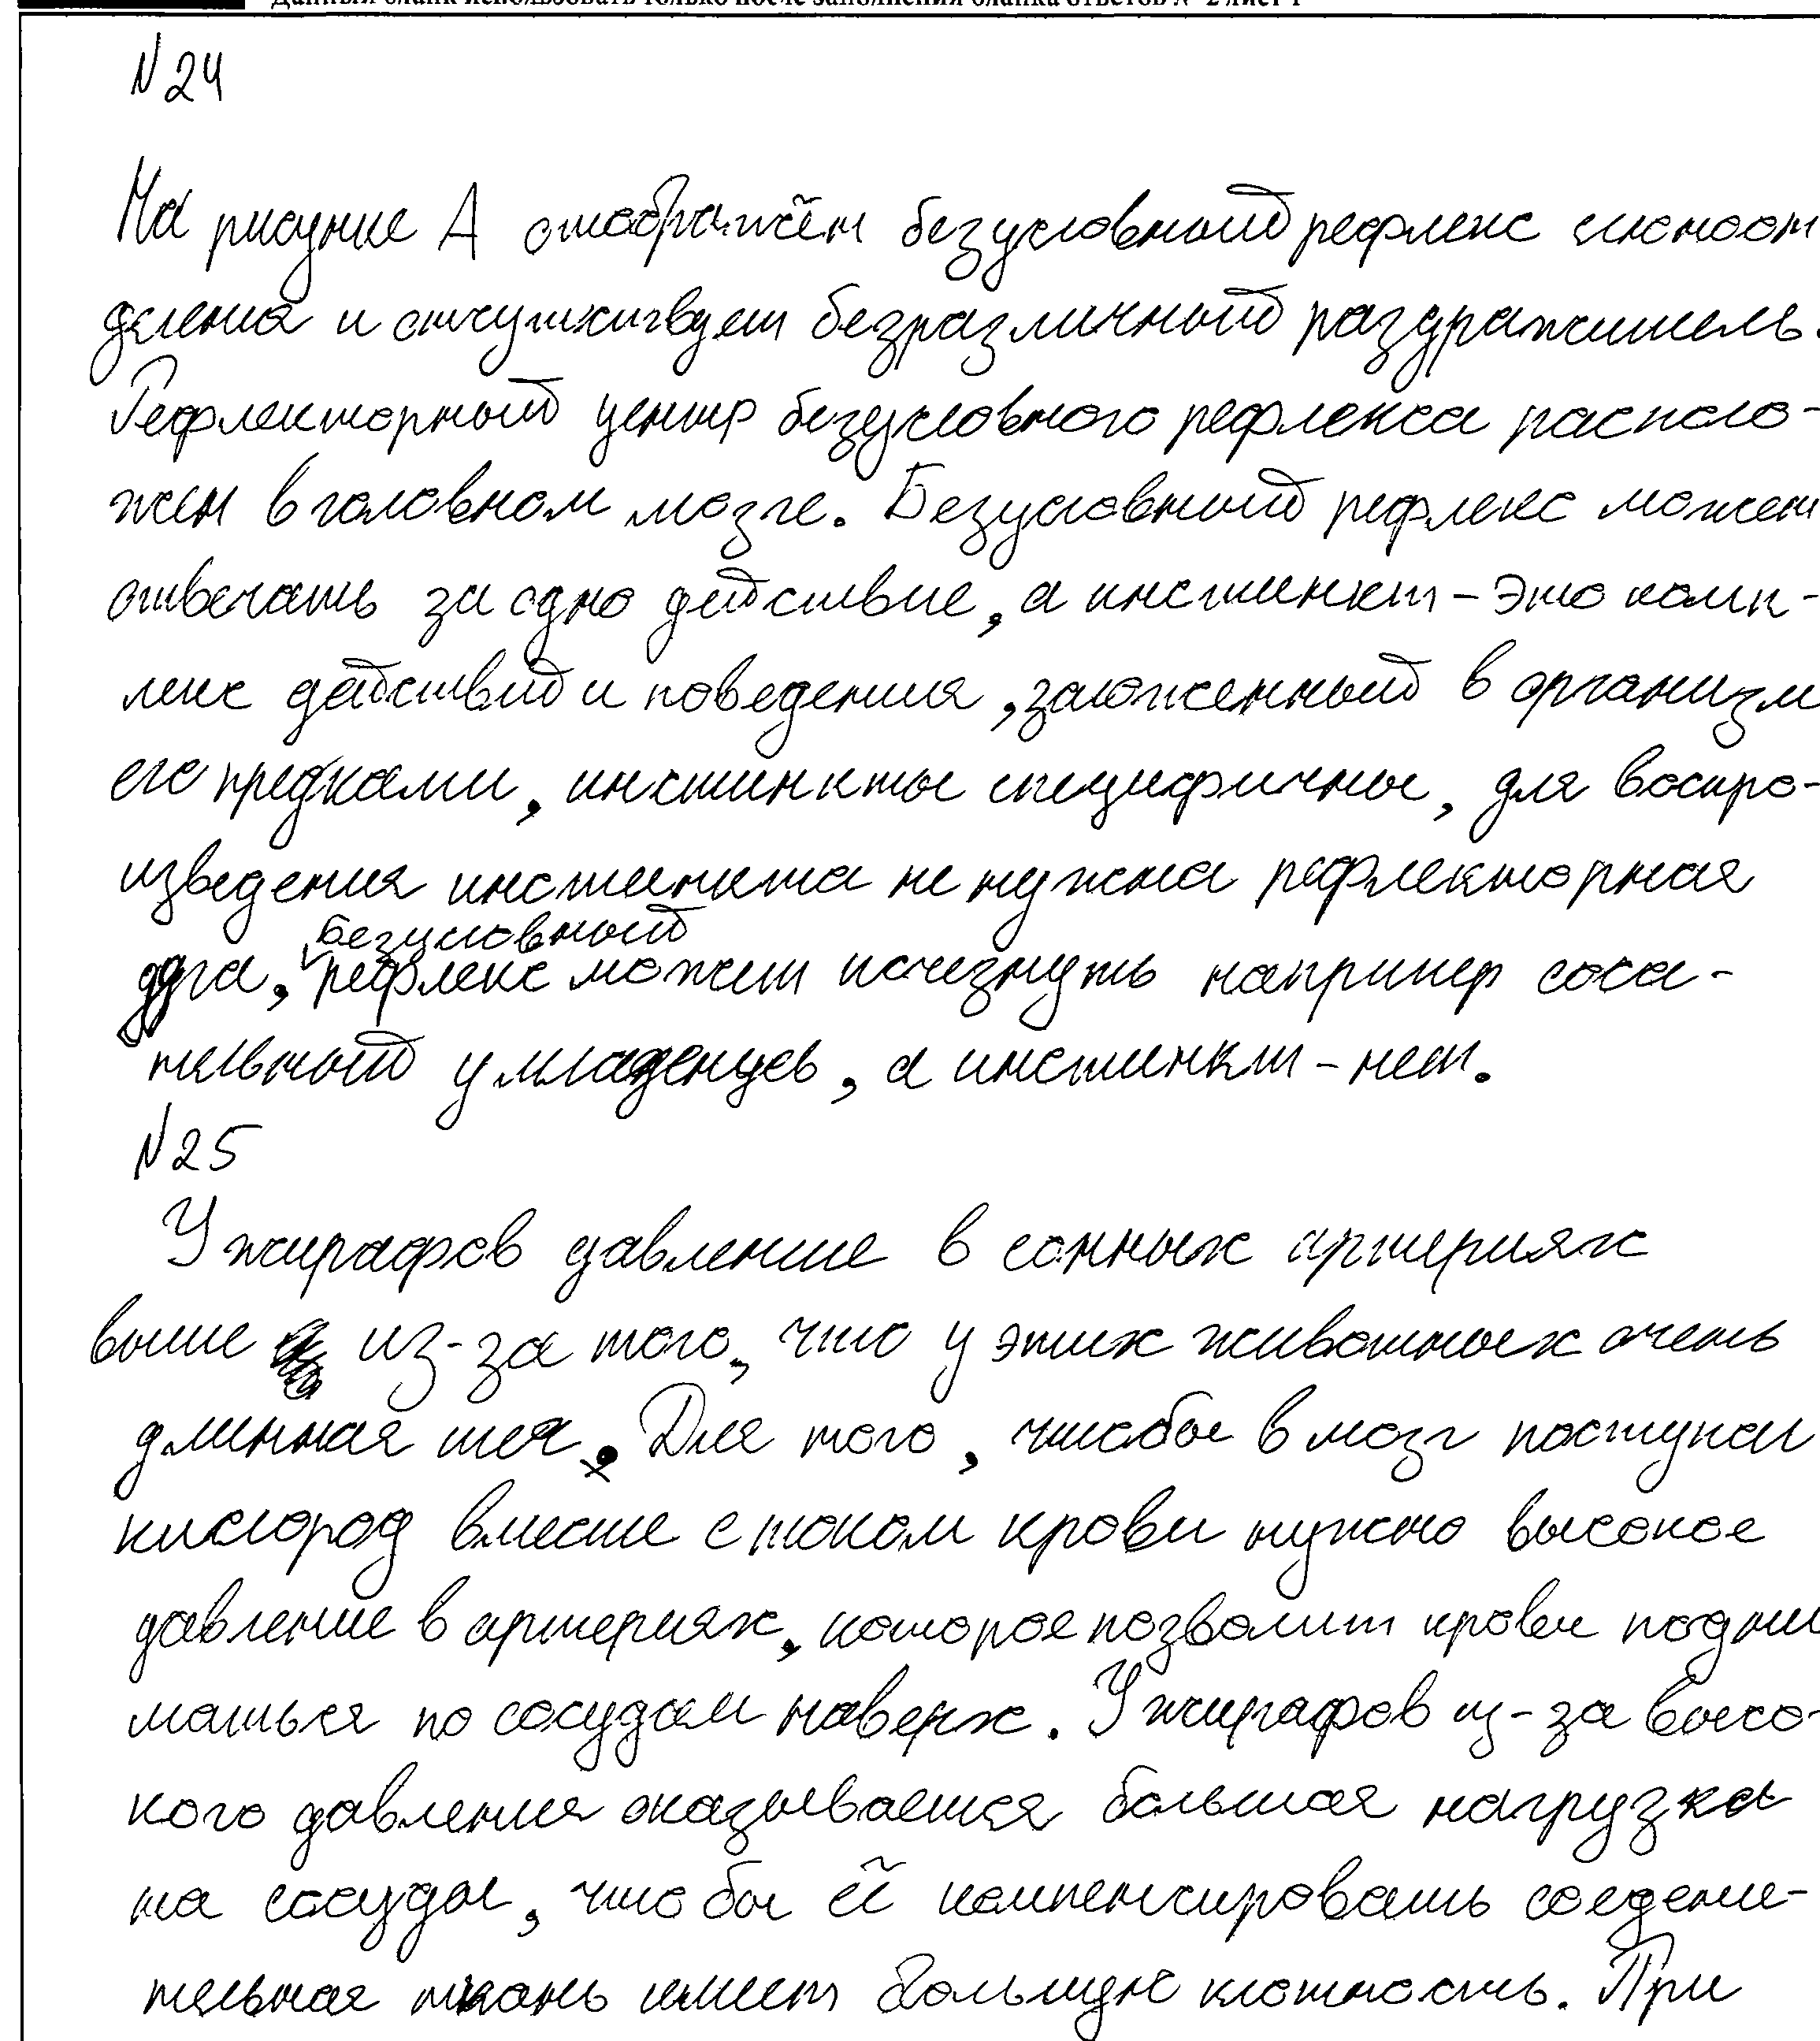 Данный бланк использовать только после заполнения бланка ответов № 2 лист 1
N 24
На рисунке А отображён безусловный рефлекс слюноот
деления и отсутствует безразличный раздражитель.
Рефлекторный центр безусловного рефлекса располо-
жен в головном мозге. Безусловный рефлекс может
отвечать за одно действие, а инстинкт - это комп-
лекс действий и поведения, заложенный в организм
его предками, инстинкты специфичны, для воспро-
изведения инстинкта не нужна рефлекторная
безусловный
дуга, рефлекс может исчезнуть например соса-
тельный у младенцев, а инстинкт - нет.
N 25
У жирафов давление в сонных артериях
выше из-за того, что у этих животных очень
длинная шея. Для того, чтобы в мозг поступал
кислород вместе с током крови нужно высокое
давление в артериях, которое позволит крови подни
маться по сосудам наверх. У жирафов из-за высо-
кого давления оказывается большая нагрузка
на сосуды, чтобы её компенсировать соедени-
тельная ткань имеет большую плотность. При